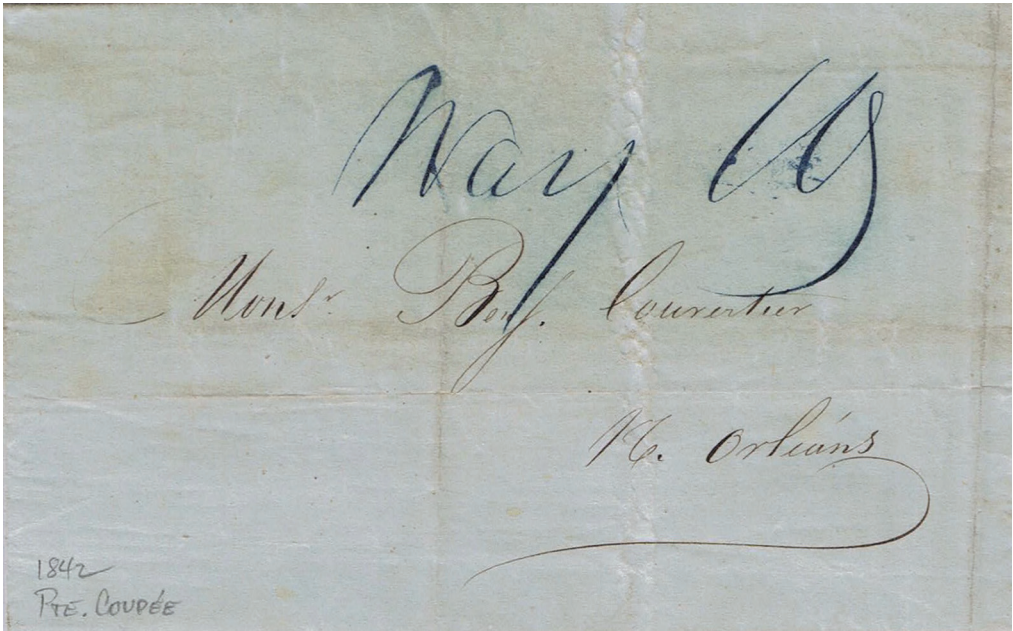 Way
Monsr. Benj. Couvertier
N. Orléans
1842
Pte. Coupée